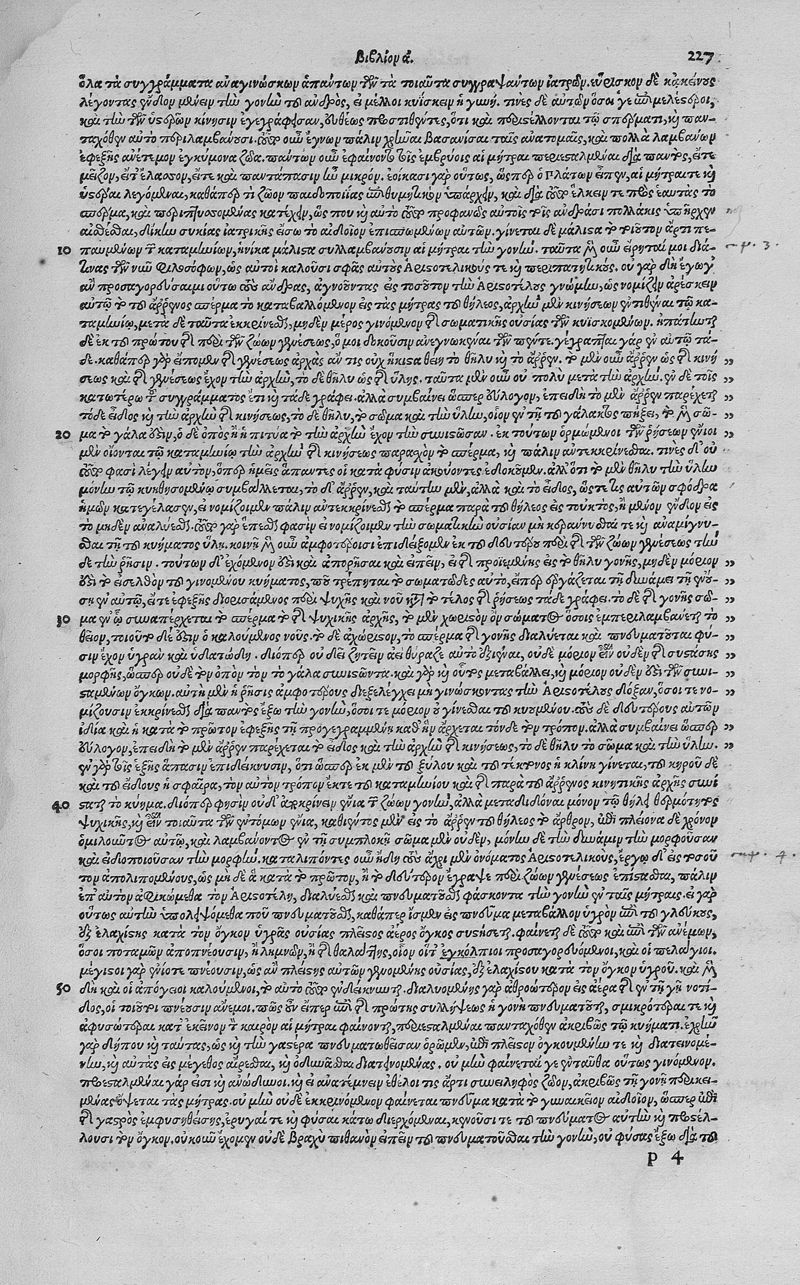 Βιβλίον α. 227
ὅλα τὰ συγγράμματα ἀναγινώσκων ἁπάντων τῶν τὰ τοιαῦτα συγγραψάντων ἰατρῶν. εὕρισκον δὲ κἀκείνους
λέγοντας ἔνδον μένειν τὴν γονὴν τοῦ ἀνδρὸς, εἰ μέλλοι κυΐσκειν ἡ γυνή. τινὲς δὲ αὐτῶν ὅσοι γε ἐπιμελέστεροι,
καὶ τὴν τῶν ὑστερῶν κίνησιν ἐγεγράφεισαν, εὐθέως προστιθέντες, ὅτι καὶ περιστέλλονται τῷ σπέρματι, καὶ παν-
ταχόθεν αὐτὸ περιλαμβάνουσι. διὸ οὖν ἔγνων πάλιν χρῆναι βασανίσαι ταῖς ἀνατομαῖς, καὶ πολλὰ λαμβάνων
ἐφεξῆς ἀνέτεμον ἐγκύμονα ζῶα. πάντων οὖν ἐφαίνοντο τοῖς ἐμβρύοις αἱ μῆτραι περιεσταλμέναι διὰ παντὸς, εἴτε
μεῖζον, εἴτ' ἔλασσον, εἴτε καὶ παντάπασιν ἦν μικρόν. ἐοίκασι γὰρ οὕτως, ὥσπερ ὁ Πλάτων εἶπεν, αἱ μῆτραί τε καὶ
ὑστέραι λεγόμεναι, καθάπερ τι ζῶον παιδοποιΐας ἐπιθυμητικὸν ὑπάρχειν, καὶ διὰ τοῦτο ἕλκειν τε πρὸς ἑαυτὰς τὸ
σπέρμα, καὶ περιπτυσσομένας κατέχειν, ὥς που καὶ αὐτὸ τοῦτο προφανῶς αὐτοῖς τοῖς ἀνδράσι πολλάκις ὑπῆρχεν
αἰσθέσθαι, δίκην σικύας ἰατρικῆς εἴσω τὸ αἰδοῖον ἐπισπωμένων αὐτῶν. γίνεται δὲ μάλιστα τὸ τοιοῦτον ἄρτι πε-
10 παυμένων τῶν καταμηνίων, ἡνίκα μάλιστα συλλαμβάνουσιν αἱ μῆτραι τὴν γονήν. ταῦτα μὲν οὖν εἴρηταί μοι διά
τινας τῶν νῦν φιλοσόφων, ὡς αὐτοὶ καλοῦσι σφᾶς αὐτοὺς Ἀριστοτελικούς τε καὶ περιπατητικούς. οὐ γὰρ δὴ ἔγωγ'
ἂν προσαγορεύσαιμι οὕτω τοὺς ἄνδρας, ἀγνοοῦντας εἰς τοσοῦτον τὴν Ἀριστοτέλους γνώμην, ὡς νομίζειν ἀρέσκειν
αὐτῷ τὸ τοῦ ἄῤῥενος σπέρμα τὸ καταβαλλόμενον εἰς τὰς μήτρας τοῦ θήλεος, ἀρχὴν μὲν κινήσεως ἐντιθέναι τῷ κα-
ταμηνίῳ, μετὰ δὲ ταῦτα ἐκκρίνεσθαι, μηδὲν μέρος γινόμενον τῆς σωματικῆς οὐσίας τῶν κυϊσκομένων. ἠπάτηνται
δὲ ἐκ τοῦ πρώτου τῆς περὶ τῶν ζώων γενέσεως, ὅ μοι δοκοῦσιν ἀνεγνωκέναι τῶν πέντε. γέγραπται γὰρ ἐν αὐτῷ τά-
δε. καθάπερ γὰρ εἴπομεν τῆς γενέσεως ἀρχὰς ἄν τις οὐχ ἥκιστα θείη τὸ θῆλυ καὶ τὸ ἄῤῥεν. τὸ μὲν οὖν ἄῤῥεν ὡς τῆς κινή „
σεως καὶ τῆς γενέσεως ἔχον τὴν ἀρχὴν, τὸ δὲ θῆλυ ὡς τῆς ὕλης. ταῦτα μὲν οὖν οὐ πολὺ μετὰ τὴν ἀρχήν. ἐν δὲ τοῖς „
κατωτέρω τοῦ συγγράμματος ἔτι καὶ τάδε γράφει. ἀλλὰ συμβαίνει ὥσπερ εὔλογον, ἐπειδὴ τὸ μὲν ἄῤῥεν παρέχεται „
τό τε εἶδος καὶ τὴν ἀρχὴν τῆς κινήσεως, τὸ δὲ θῆλυ, τὸ σῶμα καὶ τὴν ὕλην, οἷον ἐν τῇ τοῦ γάλακτος πήξει, τὸ μὲν σῶ- „
20 μα τὸ γάλα ἐστὶν, ὁ δὲ ὀπὸς ἢ ἡ πιτύα τὸ τὴν ἀρχὴν ἔχον τὴν συνιστῶσαν. ἐκ τούτων ὁρμώμενοι τῶν ῥήσεων ἔνιοι „
μὲν οἴονται τῷ καταμηνίῳ τὴν ἀρχὴν τῆς κινήσεως παρασχὸν τὸ σπέρμα, καὶ πάλιν αὖτ' ἐκκρίνεσθαι. τινὲς δ' οὐ
τοῦτο φασὶ λέγειν αὐτὸν, ὅπερ ἡμεῖς ἅπαντες οἱ κατὰ φύσιν ἀκούοντες ἐδοκοῦμεν. ἀλλ' ὅτι τὸ μὲν θῆλυ τὴν ὕλην
μόνην τῷ κυηθησομένῳ συμβάλλεται, τὸ δ' ἄῤῥεν, καὶ ταύτην μὲν, ἀλλὰ καὶ τὸ εἶδος, ὥστε τις αὐτῶν σφόδρα
ἡμῶν κατεγέλασεν, εἰ νομίζοιμεν πάλιν αὖτ' ἐκκρίνεσθαι τὸ σπέρμα παρὰ τοῦ θήλεος εἰς τοὐκτὸς, ἢ μένον ἔνδον εἰς
τὸ μηδὲν ἀναλύεσθαι. τοῦτο γὰρ ἕπεσθαί φασιν εἰ νομίζοιμεν τὴν σωματικὴν οὐσίαν μὴ κεράννυσθαί τε καὶ ἀναμίγνυ-
σθαι τῇ τοῦ κυήματος ὕλῃ. κοινῇ μὲν οὖν ἀμφοτέροισι ἐπιδείξομεν ἐκ τοῦ δευτέρου περὶ τῆς τῶν ζώων γενέσεως τήν
δε τὴν ῥῆσιν. τούτων δ' ἐχόμενον ἐστὶ καὶ ἀπορῆσαι καὶ εἰπεῖν, εἰ τῆς προϊεμένης εἰς τὸ θῆλυ γονῆς, μηδὲν μόριον „
ἐστὶ τὸ εἰσελθὸν τοῦ γινομένου κυήματος, ποῦ τρέπεται τὸ σωματῶδες αὐτοῦ, εἴπερ ἐργάζεται τῇ δυνάμει τῇ ἐνού- „
σῃ ἐν αὐτῷ, εἶτ' ἐφεξῆς διορισάμενος περὶ ψυχῆς καὶ νοῦ κατὰ τὸ τέλος τῆς ῥήσεως τάδε γράφει. τὸ δὲ τῆς γονῆς σῶ- „
30 μα ἐν ᾧ συναπέρχεται τὸ σπέρμα τὸ τῆς ψυχικῆς ἀρχῆς, τὸ μὲν χωριστὸν ὂν σώματος ὅσοις ἐμπεριλαμβάνεται τὸ „
θεῖον, τοιοῦτο δέ ἐστιν ὁ καλούμενος νοῦς. τὸ δὲ ἀχώριστον, τὸ σπέρμα τῆς γονῆς διαλύεται καὶ πνευματοῦται φύ- „
σιν ἔχον ὑγρὰν καὶ ὑδατώδη. διόπερ οὐ δεῖ ζητεῖν ἀεὶ θύραζε αὐτὸ ἐξιέναι, οὐδὲ μόριον εἶναι οὐδὲν τῆς συστάσης „
μορφῆς, ὥσπερ οὐδὲ τὸν ὀπὸν τὸν τὸ γάλα συνιστῶντα. καὶ γὰρ καὶ οὗτος μεταβάλλει, καὶ μόριον οὐδέν ἐστι τῶν συνι- „
σταμένων ὄγκων. αὕτη μὲν ἡ ῥῆσις ἀμφοτέρους διεξελέγχει μὴ γινώσκοντας τὴν Ἀριστοτέλους δόξαν, ὅσοι τε νο- „
μίζουσιν ἐκκρίνεσθαι διὰ παντὸς ἔξω τὴν γονὴν, ὅσοι τε μόριον γίνεσθαι τοῦ κυουμένου. τοὺς δὲ δευτέρους αὐτῶν
ἰδίᾳ καὶ ἡ κατὰ τὸ πρῶτον ἐφεξῆς τῇ προγεγραμμένῃ καθ' ἣν ἄρχεται τόνδε τὸν τρόπον. ἀλλὰ συμβαίνει ὥσπερ „
εὔλογον, ἐπειδὴ τὸ μὲν ἄῤῥεν παρέχεται τὸ εἶδος καὶ τὴν ἀρχὴν τῆς κινήσεως, τὸ δὲ θῆλυ τὸ σῶμα καὶ τὴν ὕλην. „
ἐν γὰρ τοῖς ἑξῆς ἅπασιν ἐπιδείκνυσιν, ὅτι ὥσπερ ἐκ μὲν τοῦ ξύλου καὶ τοῦ τέκτονος ἡ κλίνη γίνεται, τοῦ κηροῦ δὲ
καὶ τοῦ εἴδους ἡ σφαῖρα, τὸν αὐτὸν τρόπον ἔκ τε τοῦ καταμηνίου καὶ τῆς παρὰ τοῦ ἄῤῥενος κινητικῆς ἀρχῆς συνί
40 σταται τὸ κύημα. διόπερ φησὶν οὐδ' ἀποκρίνειν ἔνια τῶν ζώων γονὴν, ἀλλὰ μεταδιδόναι μόνον τῷ θήλει θερμότητος
ψυχικῆς, καὶ εἶναι τοιαῦτα τῶν ἐντόμων ἔνια, καθιέντος μὲν εἰς τὸ ἄῤῥεν τοῦ θήλεος τὸ ἄρθρον, ἐπὶ πλείονα δὲ χρόνον
ὁμιλοῦντος αὐτῷ, καὶ λαμβάνοντος ἐν τῇ συμπλοκῇ σῶμα μὲν οὐδὲν, μόνην δὲ τὴν δύναμιν τὴν μορφοῦσαν
καὶ εἰδοποιοῦσαν τὴν μορφήν. καταλιπόντες οὖν ἤδη τοὺς ἄχρι μὲν ὀνόματος Ἀριστοτελικοὺς, ἔργῳ δ' εἰς τοσοῦ
τον ἀπολιπομένους, ὡς μηδὲ ἃ κατὰ τὸ πρῶτον, ἢ τὸ δεύτερον ἔγραψε περὶ ζώων γενέσεως ἐπίστασθαι, πάλιν
ἐπ' αὐτὸν ἀφικώμεθα τὸν Ἀριστοτέλη, διαλύεσθαι καὶ πνευματοῦσθαι φάσκοντα τὴν γονὴν ἐν ταῖς μήτραις. εἰ γὰρ
οὕτως αὐτὴν ὑποληψόμεθα που πνευματοῦσθαι, καθάπερ ἴσμεν εἰς πνεῦμα μεταβάλλον ὑγρὸν ἐπὶ τοῦ γλεύκους,
ἐξ ἐλαχίστης κατὰ τὸν ὄγκον ὑγρᾶς οὐσίας πλεῖστος ἀέρος ὄγκος συστήσεται. φαίνεται δὲ τοῦτο καὶ ἐπὶ τῶν ἀνέμων,
ὅσοι ποταμῶν ἀποπνέουσιν, ἢ λιμνῶν, ἢ τῆς θαλάττης, οἷον οἵ τ' ἐγκόλπιοι προσαγορευόμενοι, καὶ οἱ πελάγιοι.
μέγιστοι γὰρ ἐνίοτε πνέουσιν, ὡς ἂν πλείστης αὐτῶν γενομένης οὐσίας, ἐξ ἐλαχίστου κατὰ τὸν ὄγκον ὑγροῦ. καὶ μὲν
50 δὴ καὶ οἱ ἀπόγειοι καλούμενοι, τὸ αὐτὸ τοῦτο ἐνδείκνυνται. διαλυομένης γὰρ ἀθροώτερον εἰς ἀέρα τῆς ἐν τῇ γῇ νοτί-
δος, οἱ τοιοῦτοι πνέουσιν ἄνεμοι. πῶς οὖν εἴπερ ἐπὶ τῆς πρώτης συλλήψεως ἡ γονὴ πνευματοῦται, σμικρόταται τε καὶ
ἀφυσόταται κατ' ἐκεῖνον τὸν καιρὸν αἱ μῆτραι φαίνονται, περιεσταλμέναι πανταχόθεν ἀκριβῶς τῷ κυήματι. ἐχρῆν
γὰρ δήπου καὶ ταύτας, ὡς καὶ τὴν γαστέρα πνευματωθεῖσαν ὁρῶμεν, ἐπὶ πλεῖστον ὀγκουμένην τε καὶ διατεινομέ-
νην, καὶ αὐτὰς εἰς μέγεθος αἴρεσθαι, καὶ ὀδυνᾶσθαι διατεινομένας. οὐ μὴν φαίνεταί γε ἐνταῦθα οὕτως γινόμενον.
προεσταλμέναι γάρ εἰσι καὶ ἀνώδυνοι. καὶ εἰ ἀνατέμνειν ἐθέλοι τις ἄρτι συνειληφὸς ζῶον, ἀκριβῶς τῇ γονῇ περικει-
μένας ὄψεται τὰς μήτρας. οὐ μὴν οὐδὲ ἐκκρινόμενον φαίνεται πνεῦμα κατὰ τὸ γυναικεῖον αἰδοῖον, ὥσπερ ἐπὶ
τῆς γαστρὸς ἐμφυσηθείσης, ἐρυγαί τε καὶ φῦσαι κάτω διερχόμεναι, κενοῦσί τε τοῦ πνεύματος αὐτὴν καὶ προστέλ-
λουσι τὸν ὄγκον, οὐκοῦν ἔχομεν οὐδὲ βραχὺ πιθανὸν εἰπεῖν τοῦ πνευματοῦσθαι τὴν γονὴν, οὐ φύσας ἔξω διὰ τοῦ
p 4